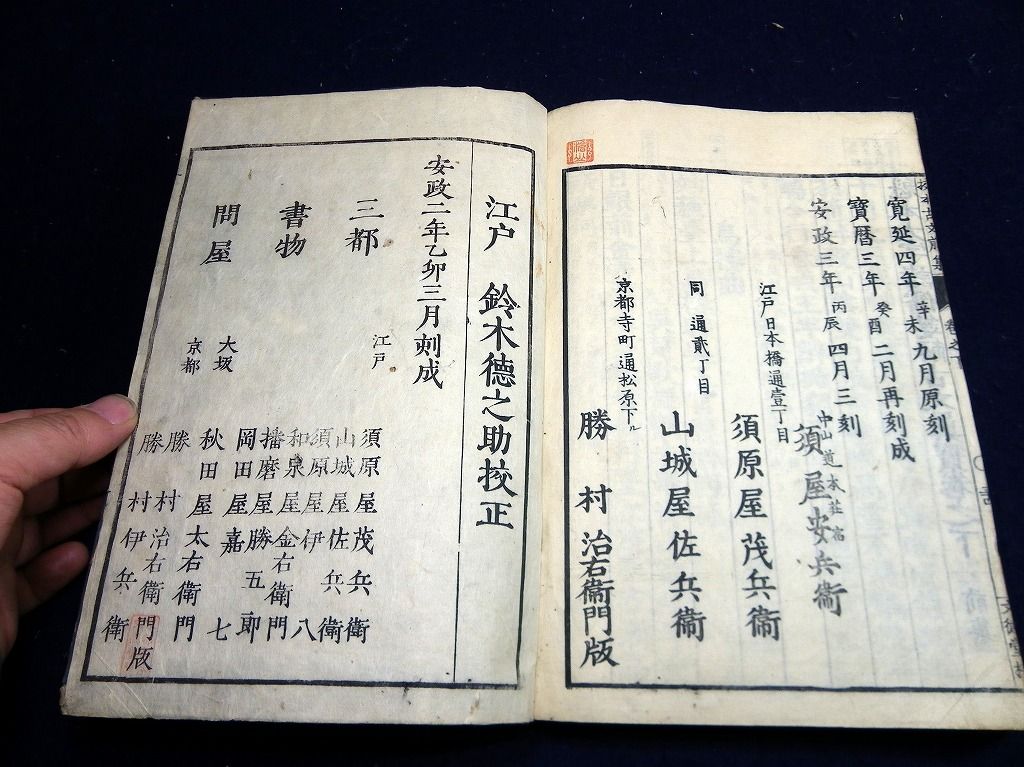 寛延四年辛未九月原刻
寶暦三年癸酉二月再刻成
安政三年丙辰四月三刻
中山道本荘宿
須屋安兵衛
江戸日本橋通壹丁目
須原屋茂兵衛
同通貳丁目
山城屋佐兵衛
京都寺町通松原下ル
勝村治右衛門版
江戸 鈴木德之助挍正
安政二年乙卯三月刻成
三都
書物
問屋
江戸
須原屋茂兵衛
山城屋佐兵衛
須原屋伊八
和泉屋金右衛門
播磨屋勝五郎
岡田屋嘉七
大坂
秋田屋太右衛門
京都
勝村治右衛門版
勝村伊兵衛